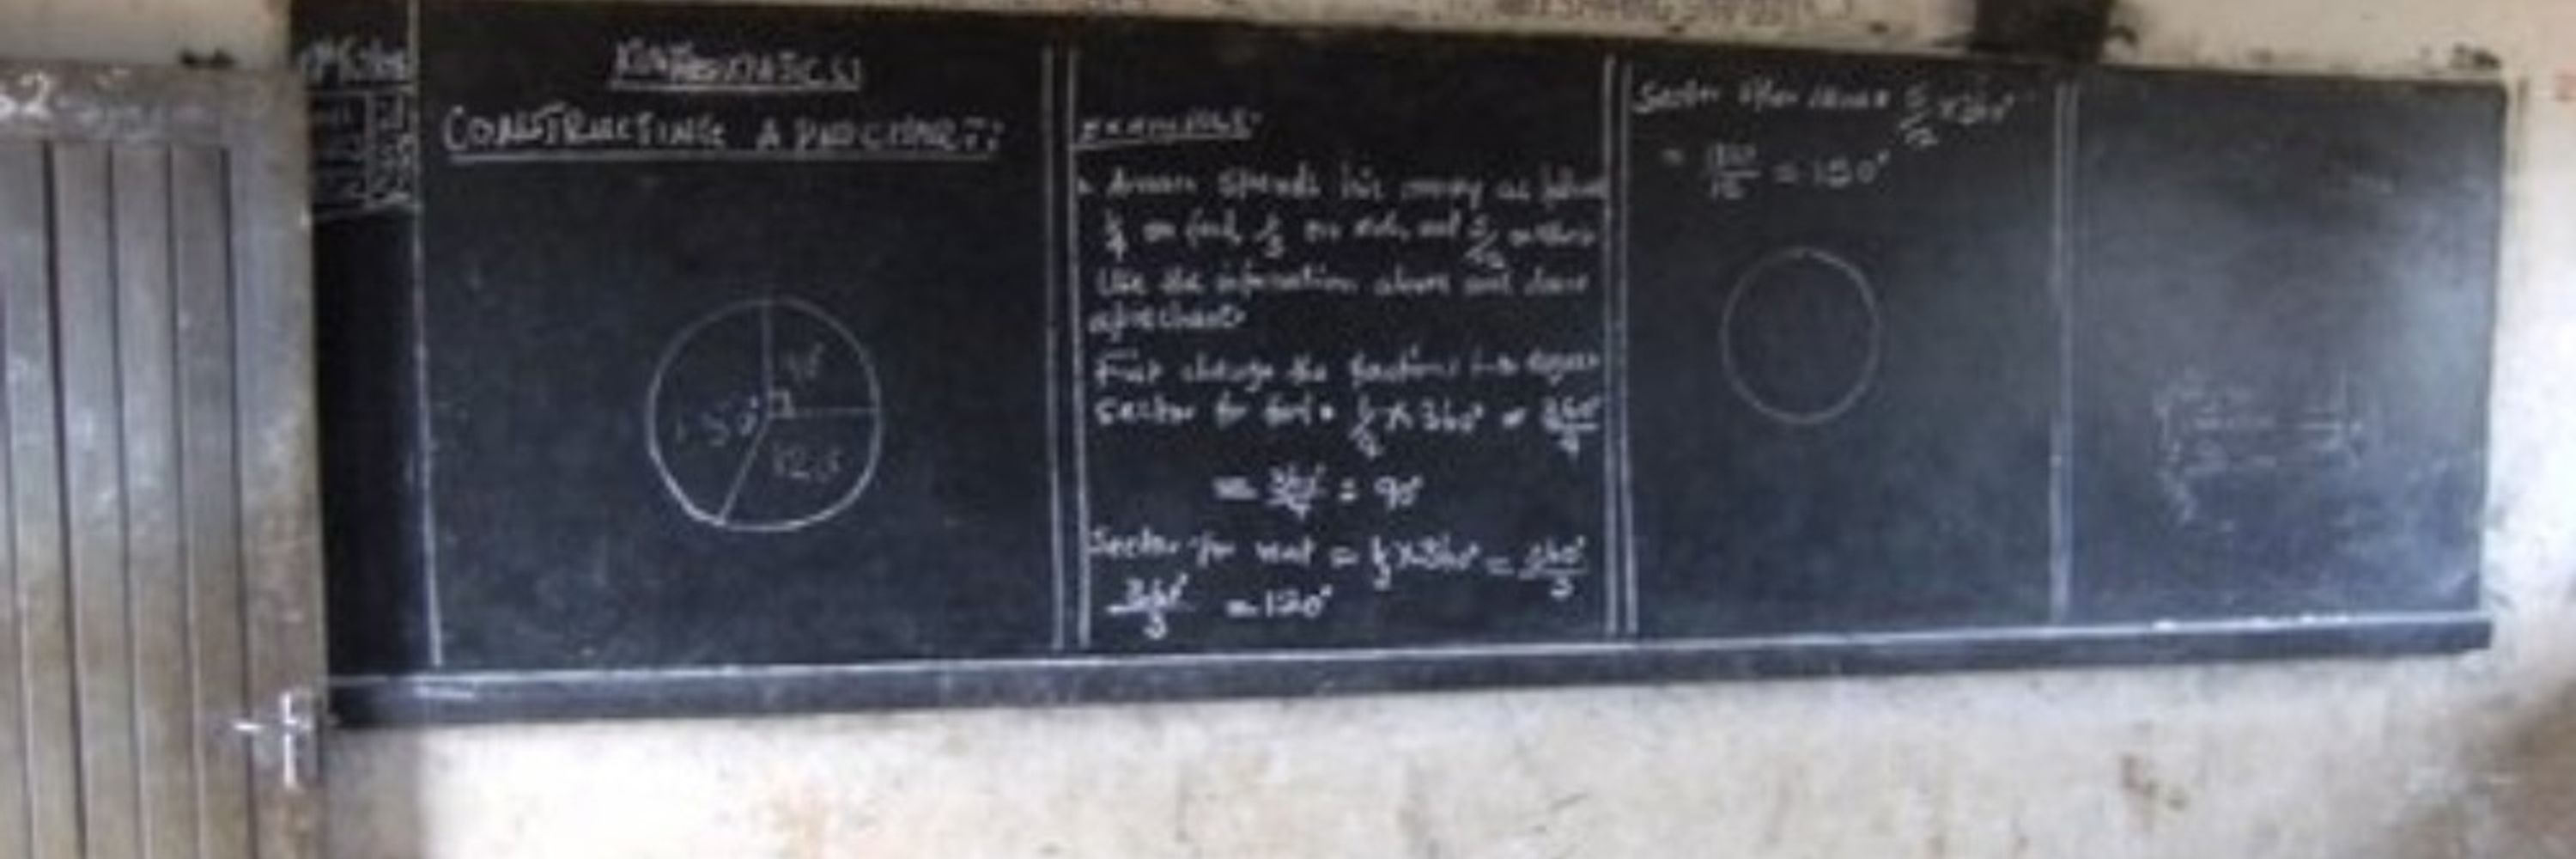 MATHEMATICS
CONSTRUCTING A PIE CHART:
90°
150°
120°
Examples:
spends his money as follows
1/4 on food, 1/3 on rent, and 5/12 on others
Use the information above and draw
a pie chart
First change the fractions into degrees
Sector for food = 1/4 × 360° = 360°/4
= 360°/4 = 90°
Sector for rent = 1/3 × 360° = 360°/3
360°/3 = 120°
Sector 5/12 × 360°
= 1800/12 = 150°